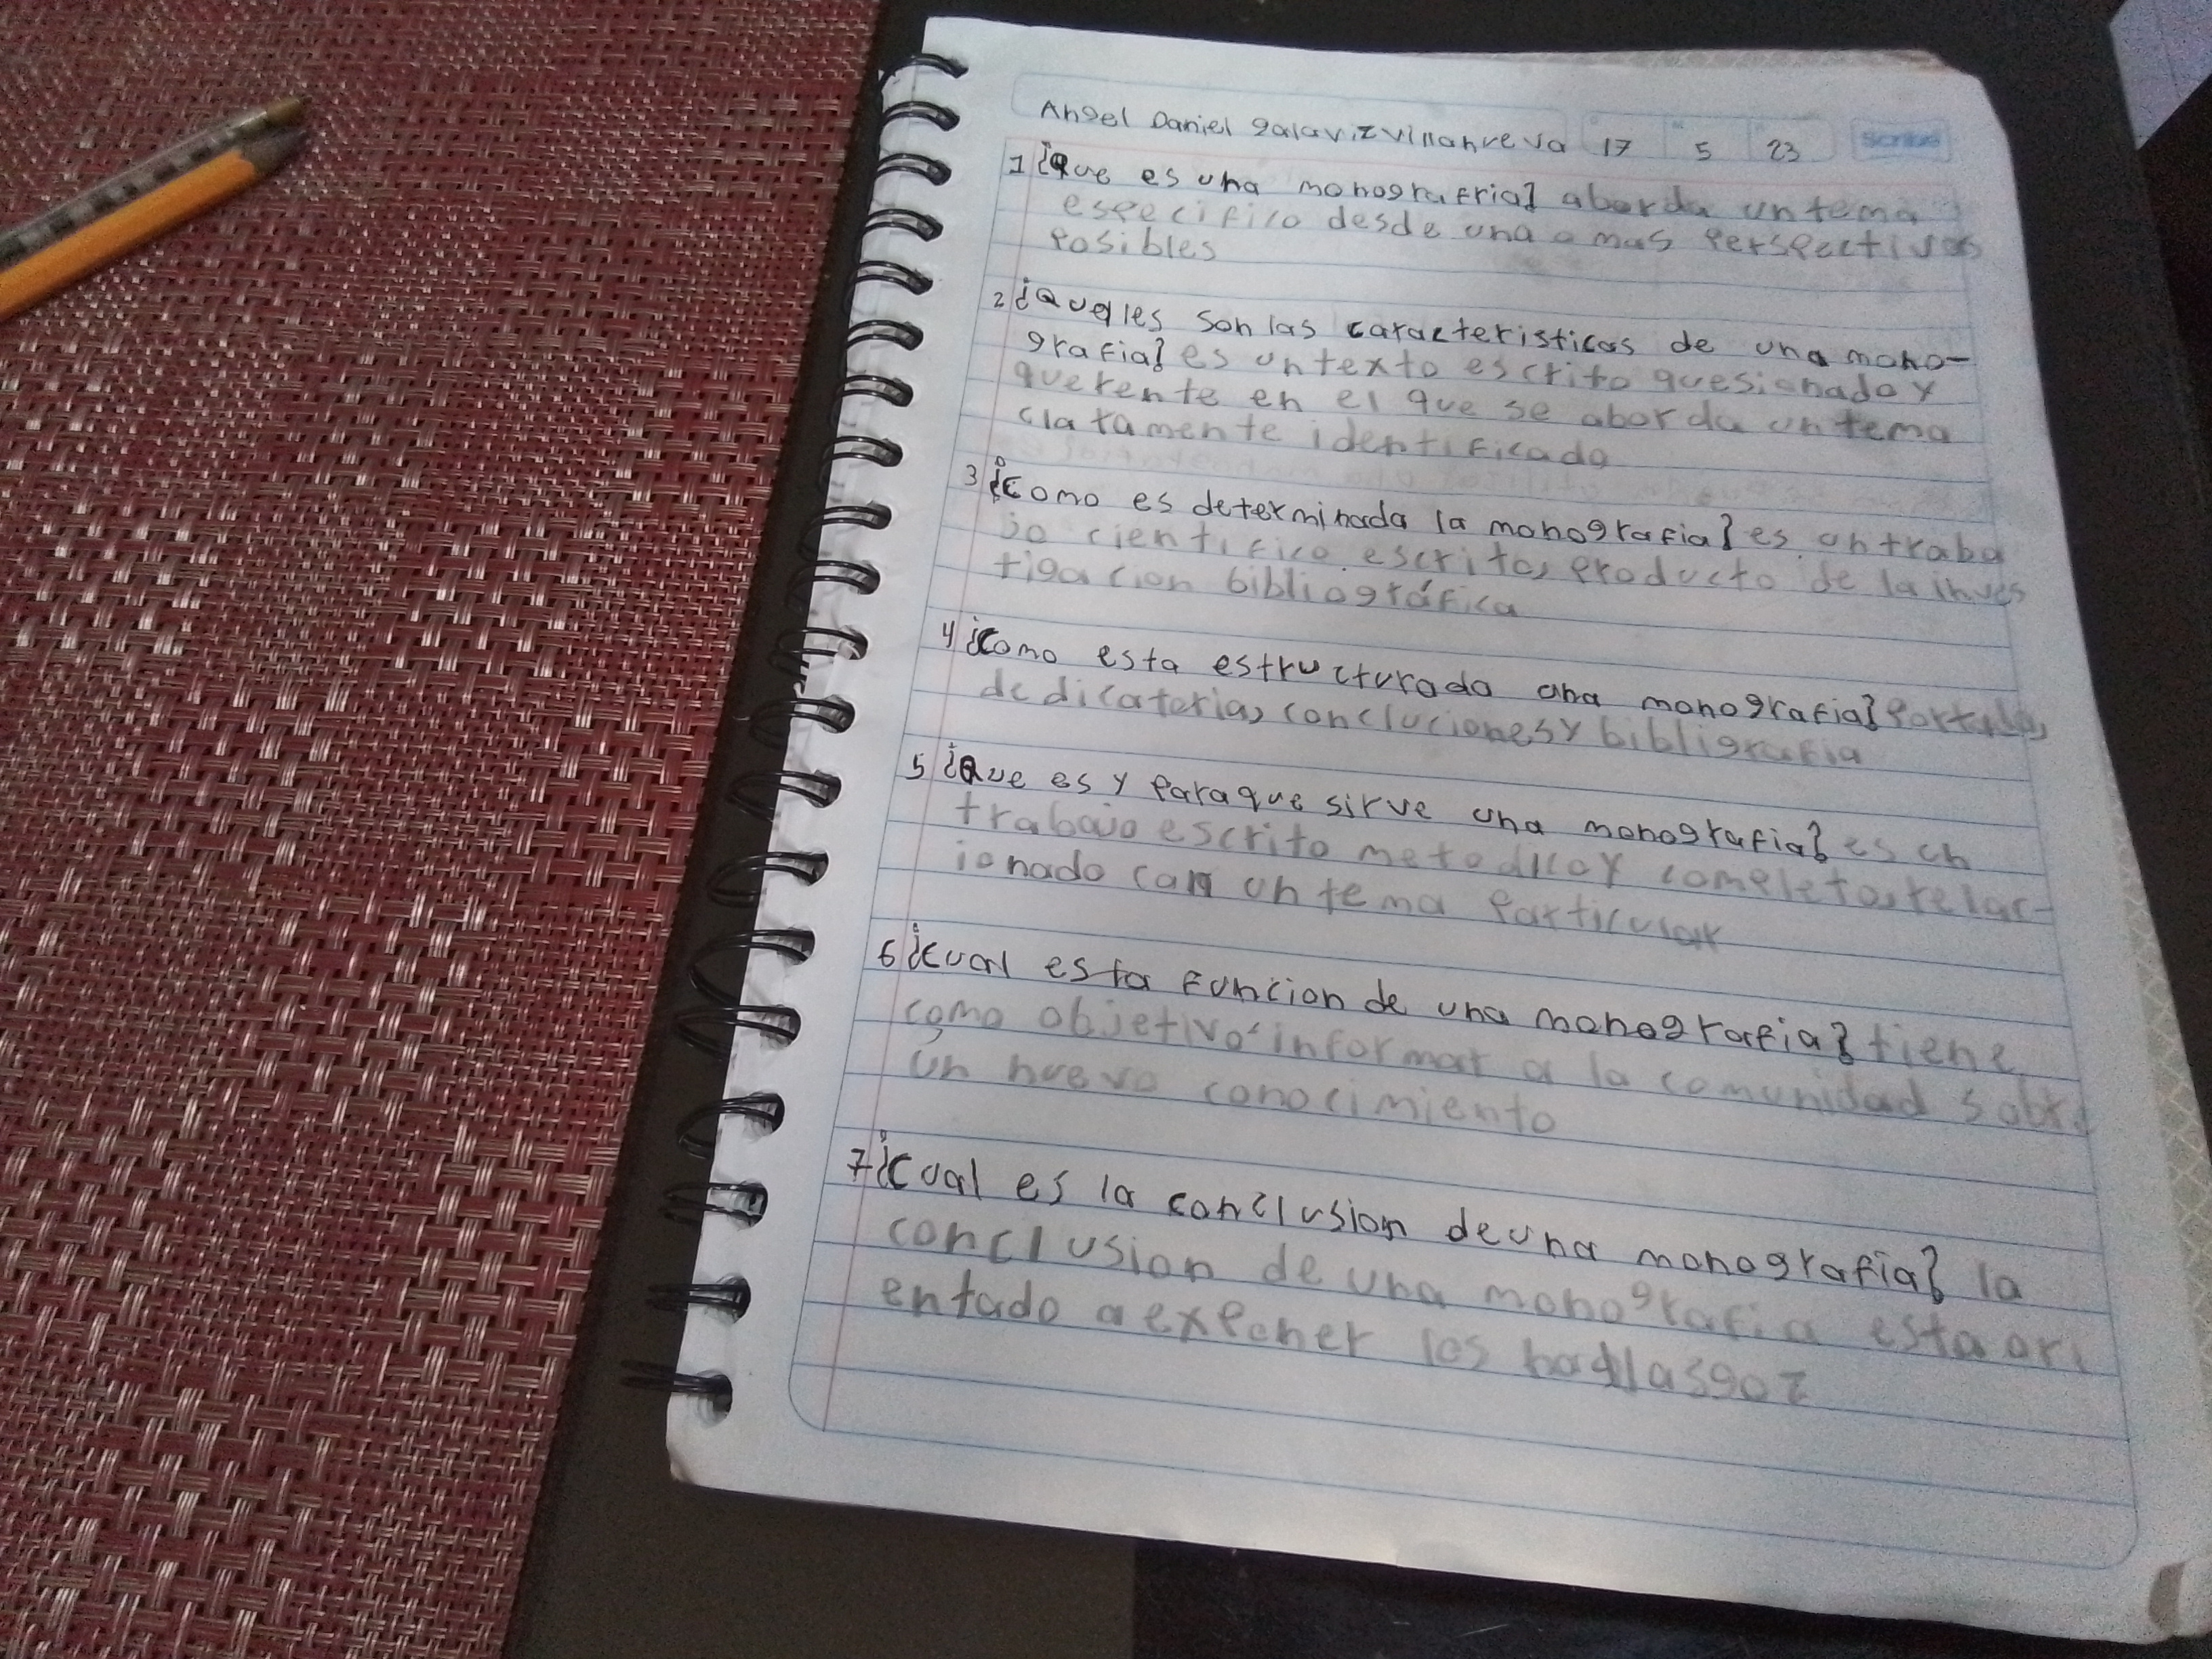 Angel Daniel galaviz villanueva 17 5 23 Scribe
1 ¿Que es una monografria? aborda un tema
especifico desde una o mas perspectivas
posibles
2 ¿Quales son las caracteristicas de una mono-
grafia? es un texto escrito quesionado y
querente en el que se aborda un tema
claramente identificado
3 ¿como es determinada la monografia? es un traba
jo cientifico escrito, producto de la inves
tigacion bibliográfica
4 ¿como esta estructurado una monografia? portada,
dedicatoria, concluciones y bibligrafia
5 ¿Que es y para que sirve una monografia? es un
trabajo escrito metodico y completo, relac-
ionado can un tema particular
6 ¿cual es la funcion de una monografia? tiene
como objetivo informar a la comunidad sobre
un nuevo conocimiento
7 ¿cual es la conclusion de una monografia? la
conclusion de una monografia esta ori
entado a exponer los